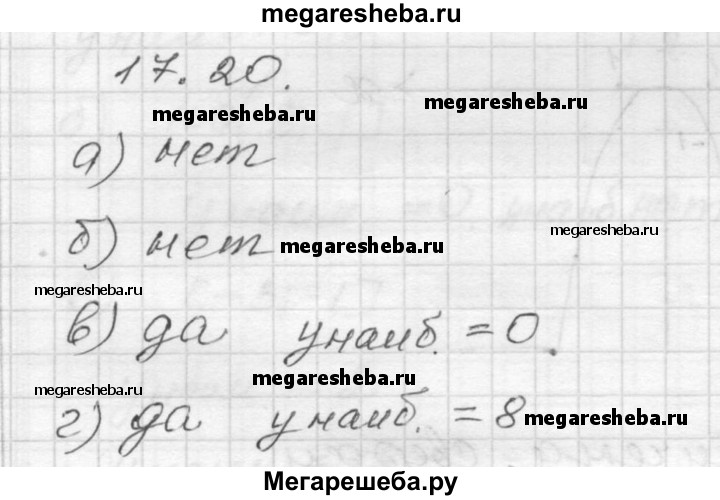 megaresheba.ru
17.20.
megaresheba.ru megaresheba.ru
а) нет
б) нет megaresheba.ru megaresheba.ru
megaresheba.ru
в) да yнаиб. = 0.
megaresheba.ru megaresheba.ru
г) да yнаиб. = 8 megaresheba.ru
Мегарешеба.ру